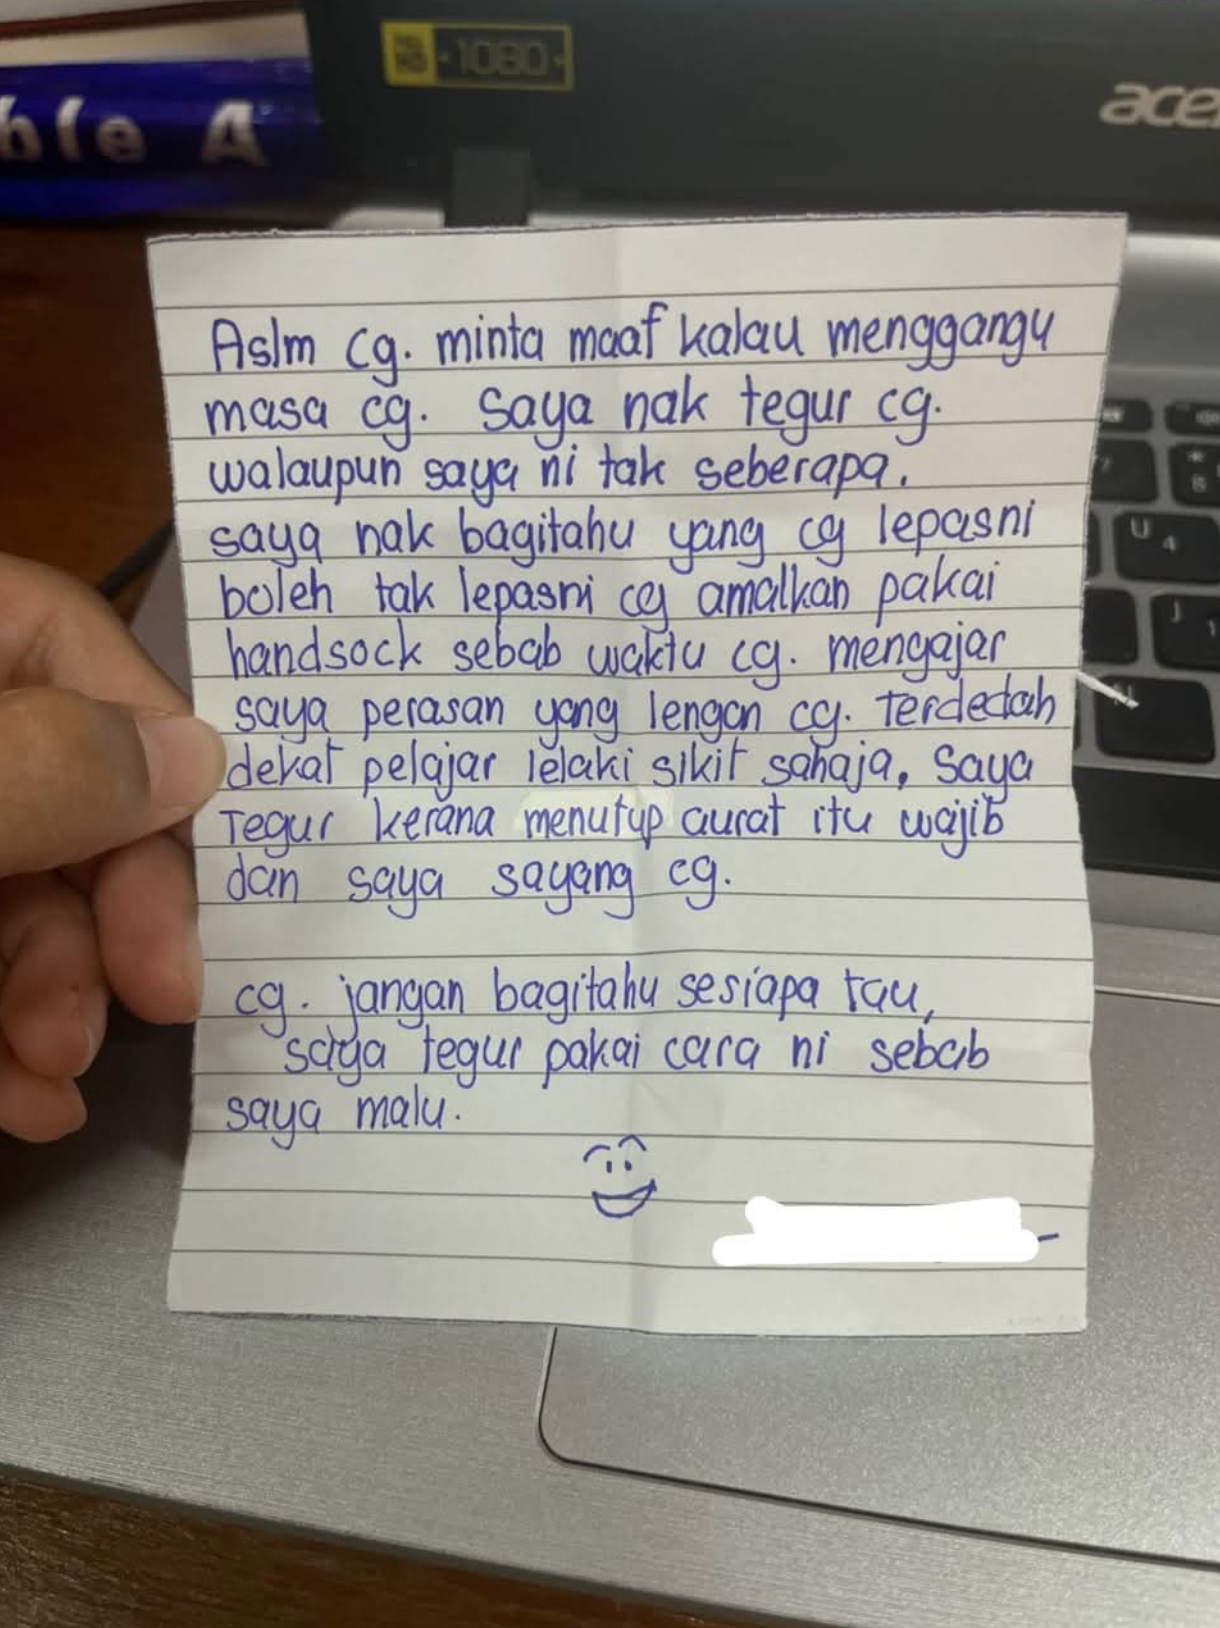 1080
acer
ble A
Aslm cg. minta maaf kalau menggangu
masa cg. Saya nak tegur cg.
walaupun saya ni tak seberapa.
saya nak bagitahu yang cg lepasni
boleh tak lepasni cg amalkan pakai
handsock sebab waktu cg. mengajar
saya perasan yang lengan cg. Terdedah
dekat pelajar lelaki sikit sahaja, Saya
Tegur kerana menutup aurat itu wajib
dan saya sayang cg.
cg. jangan bagitahu sesiapa tau,
saya tegur pakai cara ni sebab
saya malu.
U 4
J 1
* 8
7